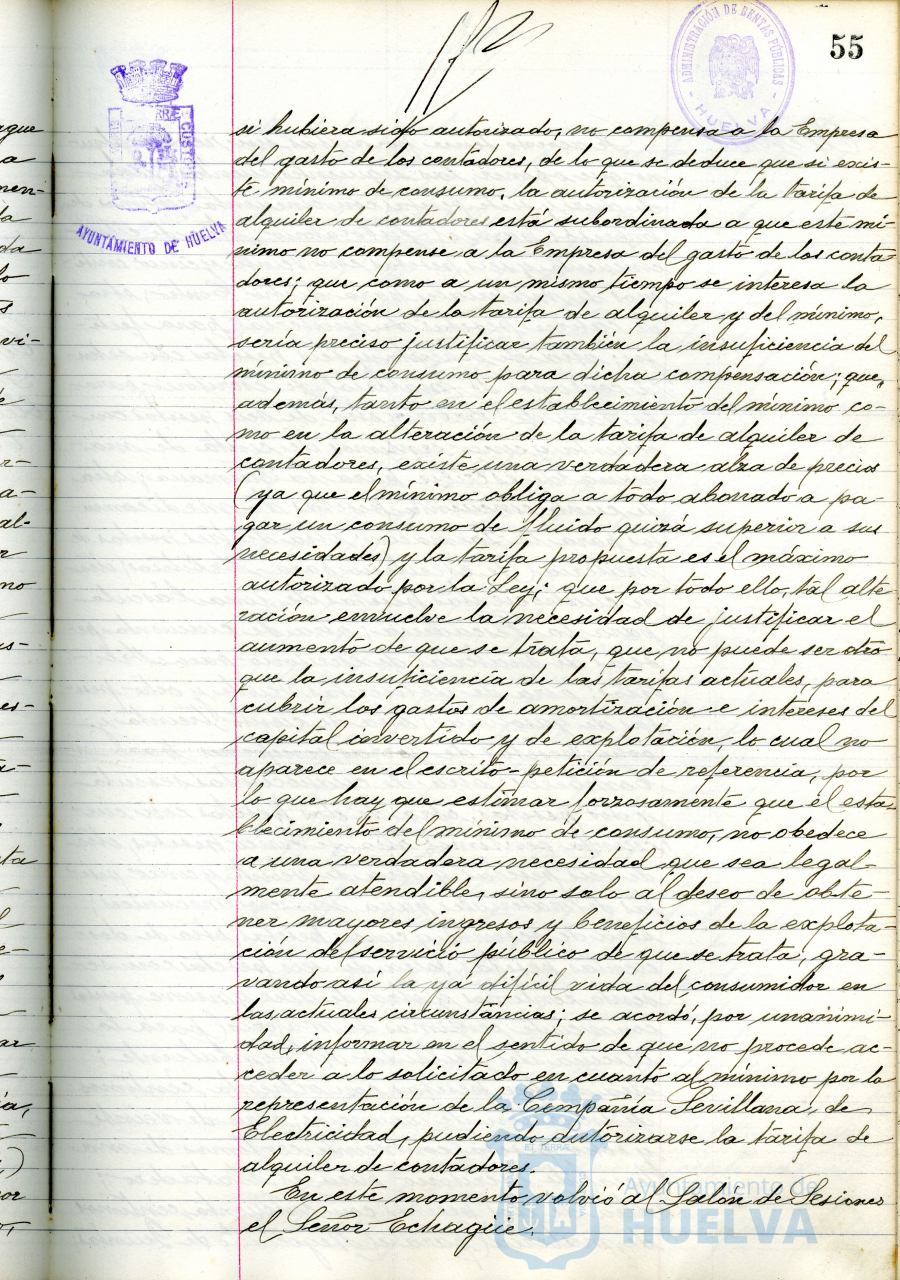 55
ADMINISTRACIÓN DE RENTAS PÚBLICAS
HUELVA
AYUNTAMIENTO DE HUELVA
si hubiera sido autorizado, no compensa a la Empresa
del gasto de los contadores, de lo que se deduce que si exis-
te mínimo de consumo, la autorización de la tarifa de
alquiler de contadores está subordinada a que este mí-
nimo no compense a la Empresa del gasto de los conta-
dores; que como a un mismo tiempo se interesa la
autorización de la tarifa de alquiler y del mínimo,
sería preciso justificar también la insuficiencia del
mínimo de consumo para dicha compensación; que,
además, tanto en el establecimiento del mínimo co-
mo en la alteración de la tarifa de alquiler de
contadores, existe una verdadera alza de precios
(ya que el mínimo obliga a todo abonado a pa-
gar un consumo de fluido quizá superior a sus
necesidades) y la tarifa propuesta es el máximo
autorizado por la Ley; que por todo ello, tal alte
ración envuelve la necesidad de justificar el
aumento de que se trata, que no puede ser otro
que la insuficiencia de las tarifas actuales, para
cubrir los gastos de amortización e intereses del
capital invertido y de explotación, lo cual no
aparece en el escrito-petición de referencia, por
lo que hay que estimar forzosamente que el esta-
blecimiento del mínimo de consumo, no obedece
a una verdadera necesidad que sea legal-
mente atendible, sino solo al deseo de obte-
ner mayores ingresos y beneficios de la explota-
ción del servicio público de que se trata, gra-
vando así la ya difícil vida del consumidor en
las actuales circunstancias; se acordó, por unanimi-
dad, informar en el sentido de que no procede ac-
ceder a lo solicitado en cuanto al mínimo por la
representación de la Compañía Sevillana de
Electricidad, pudiendo autorizarse la tarifa de
alquiler de contadores.
En este momento volvió al Salón de Sesiones
el Señor Echagüe.
Ayuntamiento de
HUELVA